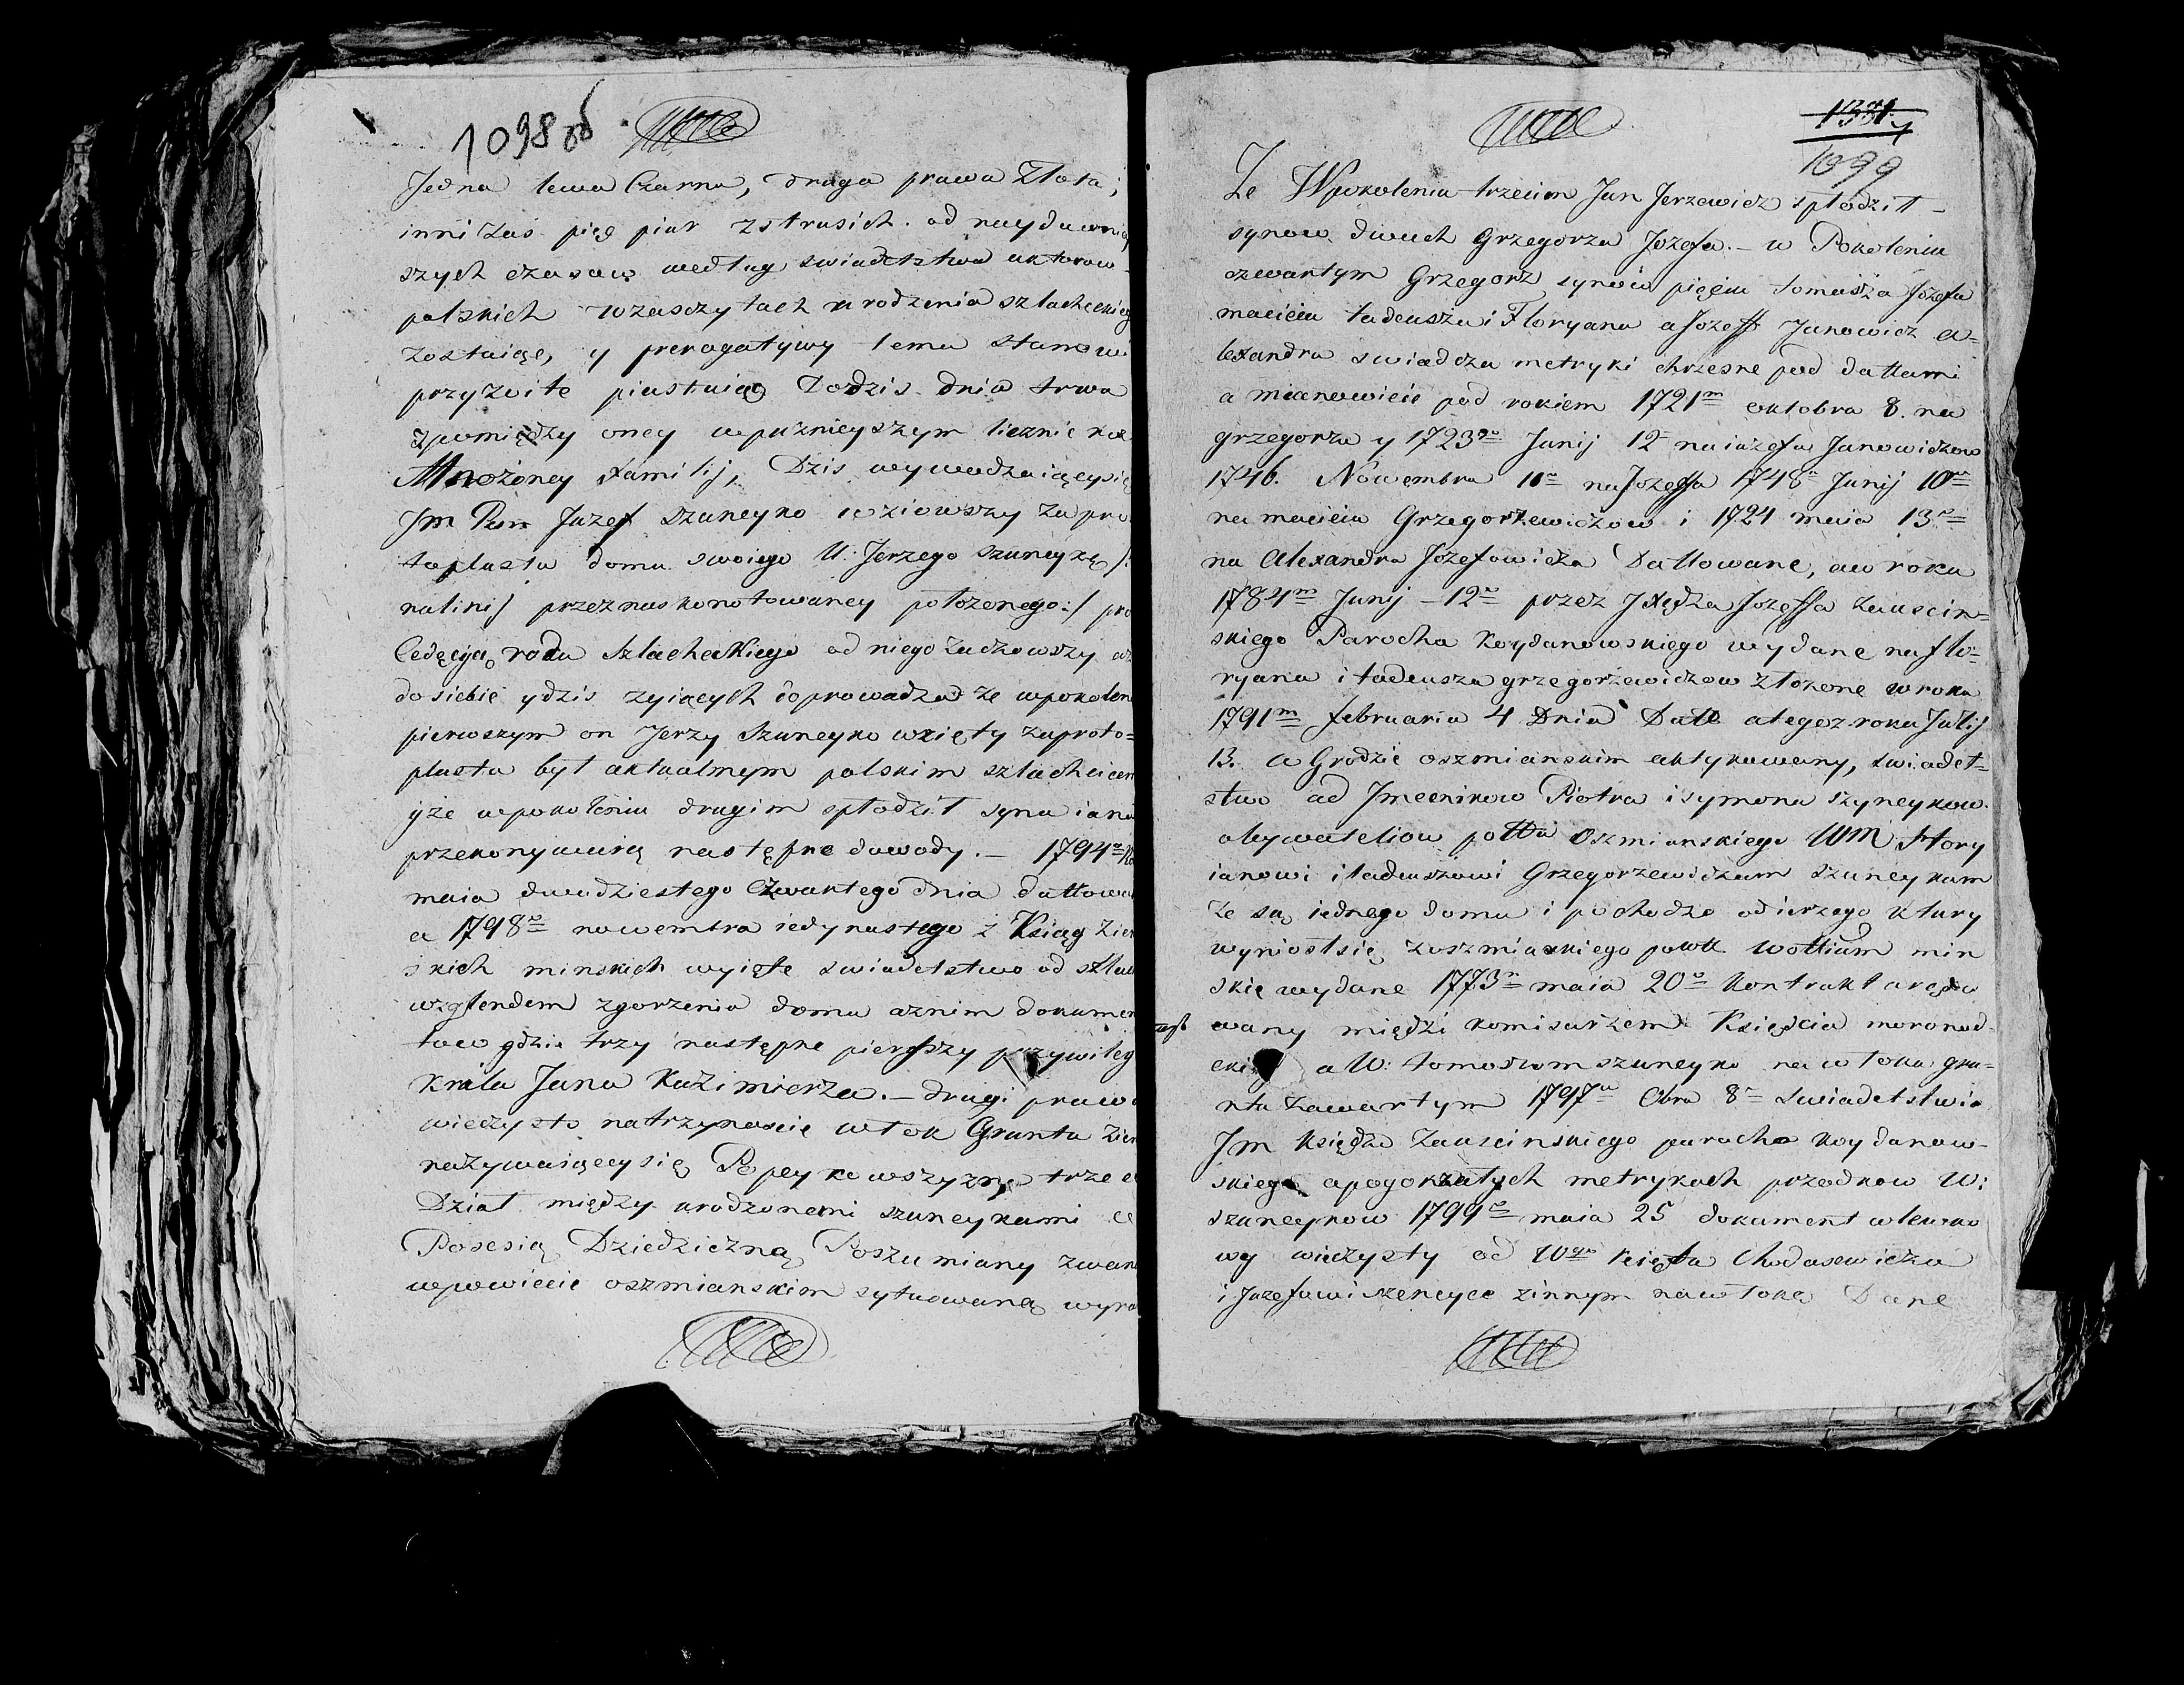 1098 об
Jedna lewa Czarna, druga prawa Złota;
inni zas pięć piur zstrusich. od naydawniey
szych czasow według swiadetstwa autorow
polskich wzasczytach urodzenia szlacheckieg
zostaiąc, y prerogatywy temu stanowi
przyzwite piastuiąc dodzis dnia trwa
zpomiędzy oney wpuznieyszym licznie roz
Mnożoney familij, Dzis wywodzaiącysię
Jm Pan Juzef Szuneyko wziowszy za pro
toplasta domu swoiego U: Jerzego Szuneykę /:
nalinij przeznas konotowaney położonego:/ pro
Cedęcyą rodu Szlacheckiego od niego zaczowszy aż
dosiebie ydzis zyiących doprowadza że wpokolen
pierwszym on Jerzy Szuneyko wzięty zaproto=
plasta był aktualnym polskim szlachcicem
yże wpokoleniu drugim spłodził syna iana
przekonywaią następne dowody. — 1794
maia dwudziestego Czwartego dnia dattowa
a 1798 nowembra iedynastego z Ksiąg Zie
skich minskich wyięte swiadetstwo od szlac
wzglendem zgorzenia domu wznim dokumen
tow gdzie trzy następne pierszy przywileg
Krola Jana Kazimierza. — drugi prawo
wieczysto natrzynascie włok Gruntu Zie
nazywaiącysię Popeykowszyzną trzec
Dział między urodzonemi szuneykami
Posesią Dziedziczną Poszumiany zwan
wpowiecie oszmianskim sytuowaną wyra
1099
Ze Wpokoleniu trzecim Jan Jerzewicz spłodził
synow dwuch Grzegorza Jozefa. — w Pokoleniu
czwartym Grzegorz synów pięciu tomasza Jozefa
macieia tadeusza i Floryana a Jozeff Janowicz a=
lexandra swiadcza metryki chrzesne pod dattami
a mianowicie pod rokiem 1721 oktobra 8. na
grzegorza y 1723 Junij 12 na iuzefa Janowiczow
1746. Nowembra 11 na Jozeffa 1748 Junij 10
na macieia Grzegorzewiczow i 1724 maia 13
na Alexandra Jozefowicza Dattowane, aw roku
1784 Junij 12 przez JXiędza Jozeffa zauscin=
skiego Parocha Koydanowskiego wydane na flo=
ryana i tadeusza grzegorzewiczow złożone wroku
1791 februaria 4 Dnia Datt ategoz roku Julij
13. w Grodzie oszmianskim aktykowany, swiadet=
stwo od Jmecnikow Piotra isymona szyneykow.
obywateliow pottu Oszmianskiego WM flory
ianowi itadeuszowi Grzegorzewiczam szuneykam
że są iednego domu i pochodzo odierzego ktury
wyniosłsię zoszmianskiego powtt wottium min
skie wydane 1773 maia 20 Kontrakt arędo
wany między komisarzem Księdcia
a W: tomoszom szuneyko na włoku gru=
ntu zawartym 1797 8bra 8 swiadetstwo
Jm księdza zauscinskiego parocha koydanow=
skiego apogorzałych metrykach przodkow W:
szuneykow 1799 maia 25 dokument
wy wieczysty od Chodasewicza
i Juzefowi szeneyce zinnym nawłokę Dane